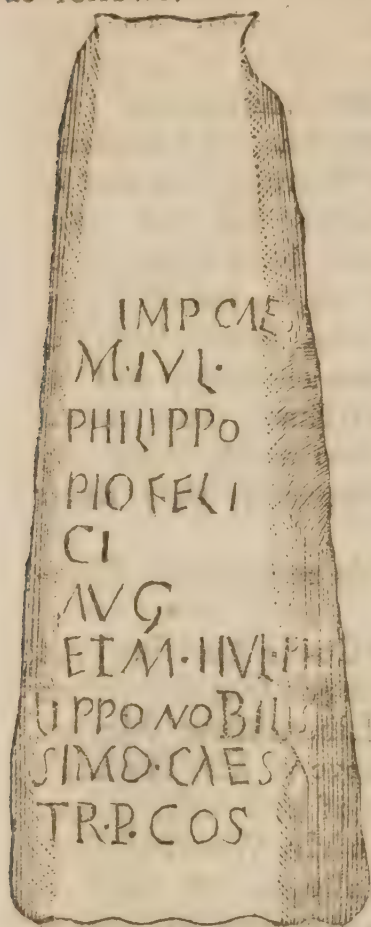 IMP CAE
M·IVL·
PHILIPPO
PIO FELI
CI
AVG·
ET M·IIVL·PHI
LIPPO NOBILIS
SIMO·CAESA
TR·P·COS